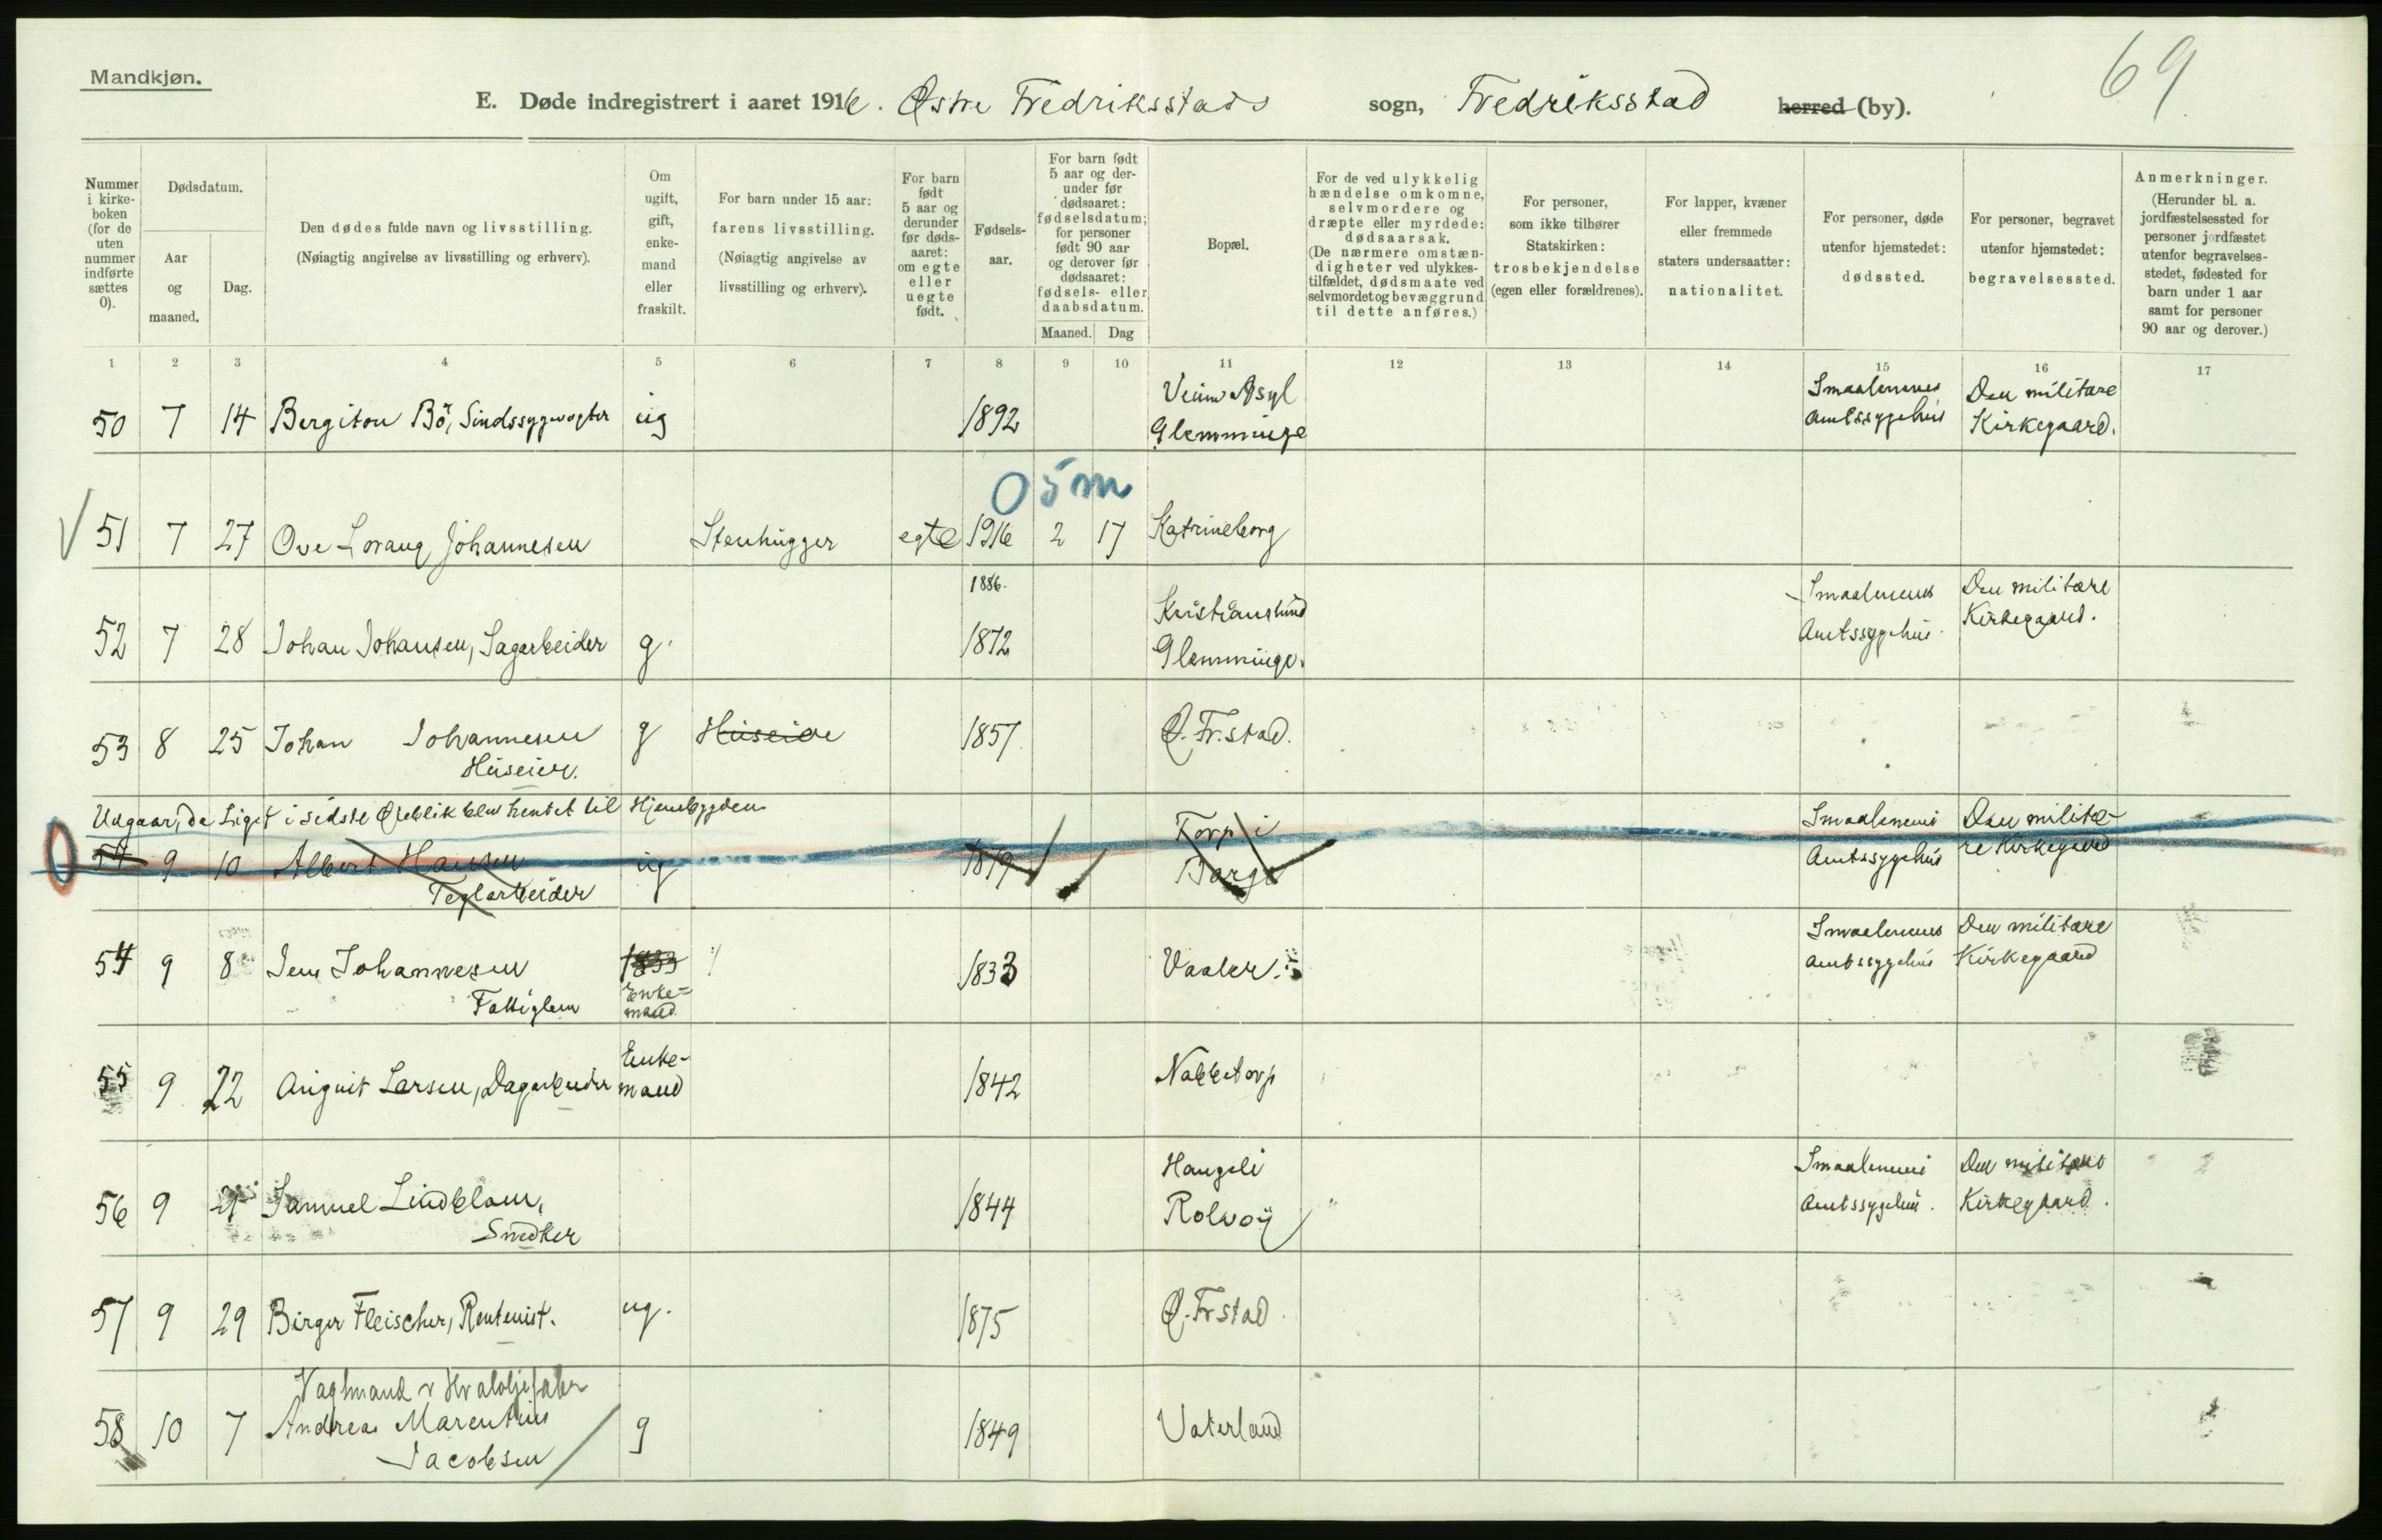 Mandkjøn.
69
E. Døde indregistrert i aaret 1916. Østre Fredriksstads sogn, Fredriksstad herred (by).
Nummer i kirkeboken (for de uten nummer indførte sættes 0).
Dødsdatum.
Aar og maaned.
Dag.
Den dødes fulde navn og livsstilling.
(Nøiagtig angivelse av livsstilling og erhverv).
Om ugift, gift, enkemand eller fraskilt.
For barn under 15 aar: farens livsstilling.
(Nøiagtig angivelse av livsstilling og erhverv).
For barn født 5 aar og derunder før dødsaaret: om egte eller uegte født.
Fødselsaar.
For barn født 5 aar og derunder før dødsaaret: fødselsdatum; for personer født 90 aar og derover før dødsaaret: fødsels- eller daabsdatum.
Maaned. Dag
Bopæl.
For de ved ulykkelig hændelse omkomne, selvmordere og dræpte eller myrdede: dødsaarsak.
(De nærmere omstændigheter ved ulykkestilfældet, dødsmaate ved selvmordet og bevæggrund til dette anføres.)
For personer, som ikke tilhører Statskirken: trosbekjendelse (egen eller forældrenes).
For lapper, kvæner eller fremmede staters undersaatter: nationalitet.
For personer, døde utenfor hjemstedet: dødssted.
For personer, begravet utenfor hjemstedet: begravelsessted.
Anmerkninger.
(Herunder bl. a. jordfæstelsessted for personer jordfæstet utenfor begravelsesstedet, fødested for barn under 1 aar samt for personer 90 aar og derover.)
1 2 3 4 5 6 7 8 9 10 11 12 13 14 15 16 17
50 7 14 Bergiton Bö, Sindssygevogter ug 1892 Veum Asyl Glemminge Smaalenenes Amtssygehus Den militære Kirkegaard.
0 5 m
51 7 27 Ove Lorang Johannesen Stenhugger egte 1916 2 17 Katrineborg
1886.
52 7 28 Johan Johansen, Sagarbeider g. 1872 Kristianslund Glemminge. Smaalenenes Amtssygehus. Den militære Kirkegaard.
53 8 25 Johan Johannesen Huseier. g Huseier 1857 Ø. Fr.stad.
Udgaar, da Liget i sidste Øieblik blev hentet til Hjembygden
54 9 10 Albert Hansen Teglarbeider ug 1879 Torp i Borge Smaalenenes Amtssygehus Den militære Kirkegaard
54 9 8 Jens Johannesen Fattiglem 1833 Enkemand 1833 Vaaler. Smaalenenes Amtssygehus Den militære Kirkegaard
55 9 22 August Larsen, Dagarbeider Enkemand 1842 Nabbetorp
56 9 Samuel Lindblom, Snedker 1844 Haugeli Rolvsöy Smaalenenes Amtssygehus. Den militære Kirkegaard.
57 9 29 Birger Fleischer, Rentenist. ug. 1875 Ø. Frstad.
Vagtmand v Hvaloljefabr
58 10 7 Andreas Marentius Jacobsen g 1849 Vaterland